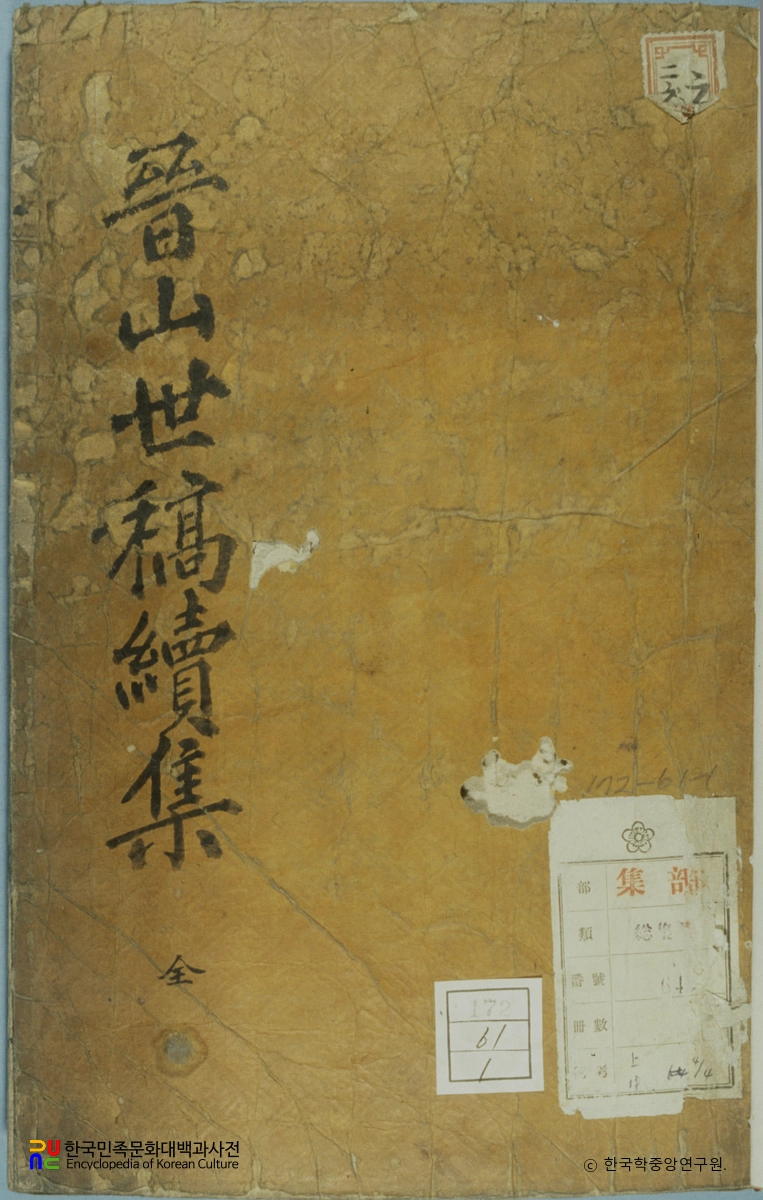 晉山世稿續集
全
二六
二
172-61-1
集部
部
類
總集
番號
冊數
172
61
1
한국민족문화대백과사전
Encyclopedia of Korean Culture
© 한국학중앙연구원.